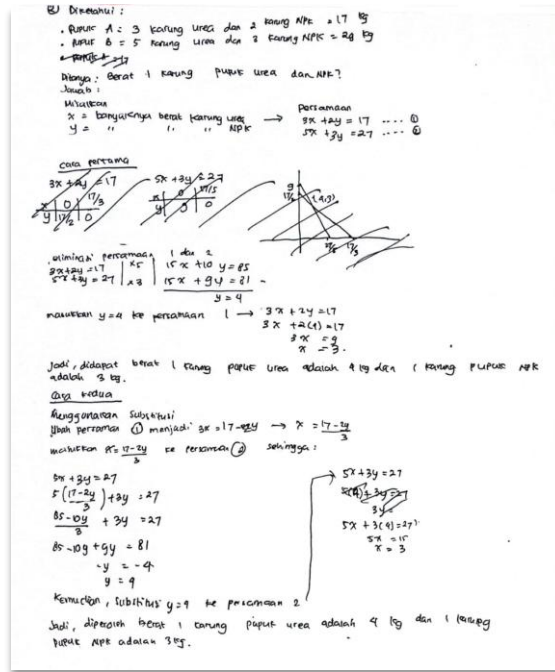 B) Diketahui :
• Pupuk A = 3 karung urea dan 2 karung NPK = 17 kg
• Pupuk B = 5 karung urea dan 3 karung NPK = 27 kg
Ditanya : Berat 1 karung pupuk urea dan NPK?
Jawab :
Misalkan
x = banyaknya berat karung urea →
y = " " " NPK
Persamaan
3x + 2y = 17 .... ①
5x + 3y = 27 .... ②
cara pertama
3x + 2y = 17
x | 0 | 17/3
y | 17/2 | 0
5x + 3y = 27
x | 0 | 17/5
y | 9 | 0
9
17/2
17/3
eliminasi persamaan 1 dan 2
3x + 2y = 17 | x5 | 15x + 10y = 85
5x + 3y = 27 | x3 | 15x + 9y = 81 -
y = 4
masukkan y=4 ke persamaan 1 → 3x + 2y = 17
3x + 2(4) = 17
3x = 9
x = 3.
Jadi, didapat berat 1 karung pupuk urea adalah 4 kg dan 1 karung pupuk NPK
adalah 3 kg.
Cara kedua
Menggunakan Substitusi
Ubah persmaan ① menjadi 3x = 17 - 2y → x = 17-2y/3
masukkan x = 17-2y/3 ke persamaan ② sehingga :
5x + 3y = 27
5(17-2y/3) + 3y = 27
85-10y/3 + 3y = 27
85 - 10y + 9y = 81
-y = -4
y = 4
Kemudian, substitusi y=4 ke persamaan 2
→ 5x + 3y = 27
5x + 3(4) = 27
5x = 15
x = 3
Jadi, diperoleh berat 1 karung pupuk urea adalah 4 kg dan 1 karung
pupuk NPK adalah 3 kg.